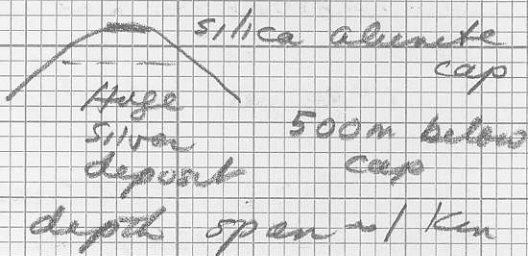 silica alunite
cap
Huge
silver
deposit
500m below
cap
depth span ~ 1 km